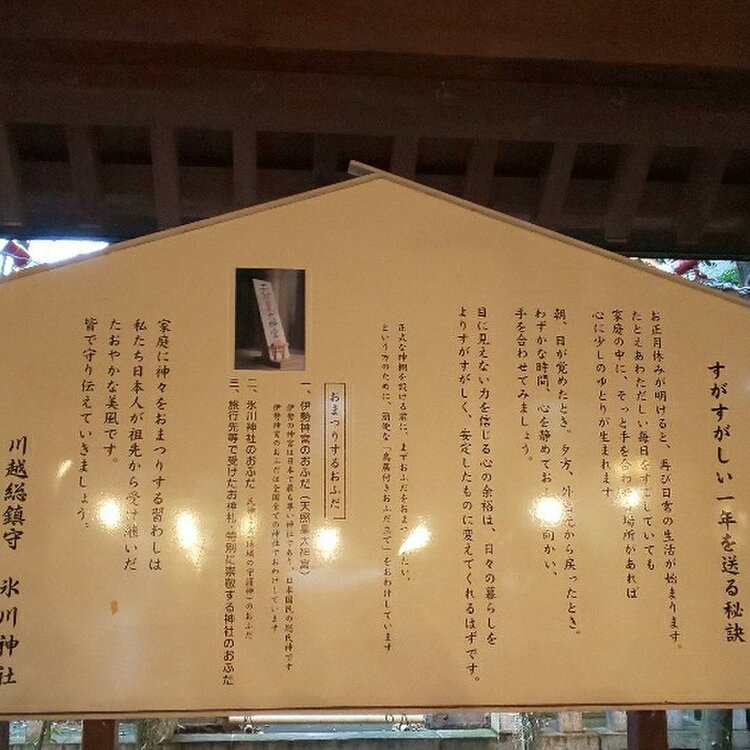 すがすがしい一年を送る秘訣
お正月休みが明けると、再び日常の生活が始まります。
たとえあわただしい毎日をすごしていても
家庭の中に、そっと手を合わ 場所があれば
心に少しのゆとりが生まれます
朝、目が覚めたとき。夕方、外 先から戻ったとき。
わずかな時間、心を静めてお 向かい、
手を合わせてみましょう。
目に見えない力を信じる心の余裕は、日々の暮らしを
よりすがすがしく、安定したものに変えてくれるはずです。
正式な神棚を設ける前に、まずおふだをおまつ たい、
という方のために、簡便な「鳥居付きおふだ立て」をおわけしています
おまつりするおふだ
一、伊勢神宮のおふだ(天照皇大神宮)
伊勢の神宮は日本で最も尊い神社であり、日本国民の総氏神です
伊勢神宮のおふだは全国全ての神社でおわけしています
二、氷川神社のおふだ 氏神 地域の守護神)のおふだ
三、旅行先等で受けたお神札・特別に崇敬する神社のおふだ
天照皇大神宮
家庭に神々をおまつりする習わしは
私たち日本人が祖先から受け継いだ
たおやかな美風です。
皆で守り伝えていきましょう。
川越総鎮守 氷川神社